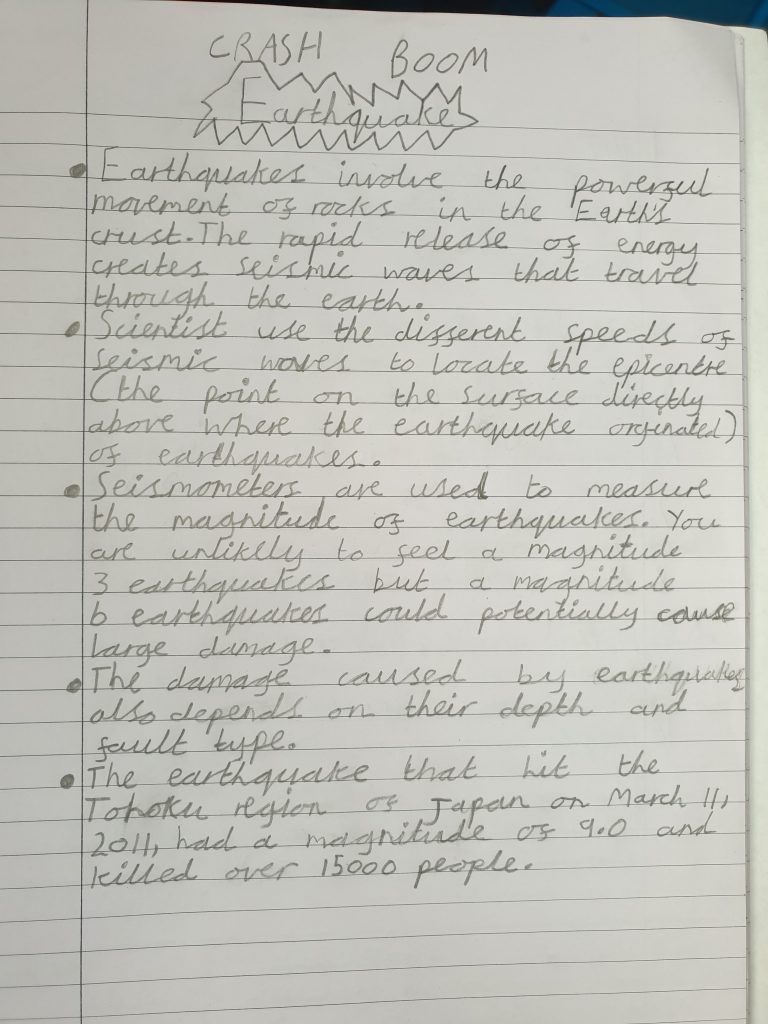 CRASH BOOM
Earthquake
• Earthquakes involve the powerful
movement of rocks in the Earth's
crust. The rapid release of energy
creates seismic waves that travel
through the earth.
• Scientist use the different speeds of
seismic waves to locate the epicentre
(the point on the surface directly
above where the earthquake orginated)
of earthquakes.
• Seismometers are used to measure
the magnitude of earthquakes. You
are unlikely to feel a magnitude
3 earthquakes but a magnitude
6 earthquakes could potentially cause
large damage.
• The damage caused by earthquakes
also depends on their depth and
fault type.
• The earthquake that hit the
Tohoku region of Japan on March 11,
2011, had a magnitude of 9.0 and
killed over 15000 people.